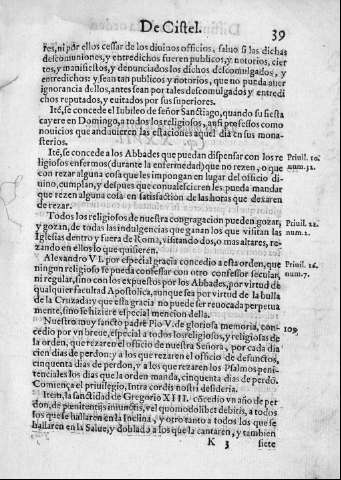 De Cistel. 39
res, ni por ellos cessar de los diuinos officios, saluo si las dichas
descomuniones, y entredichos fueren publicos, y notorios, cier
tos, y manifiestos, y denunciados los dichos descomulgados, y
entredichos: y sean tan publicos y notorios, que no pueda auer
ignorancia dellos, antes sean por tales descomulgados y entredi
chos reputados, y euitados por sus superiores.
Ité, se concede el Iubileo de señor Sanctiago, quando su fiesta
cayere en Domingo, a todos los religiosos, ansi professos como
nouicios que anduuieren las estaciones aquel dia en sus mona-
sterios.
Ité, se concede a los Abbades que puedan dispensar con los re
ligiosos enfermos (durante la enfermedad) que no rezen, o que
con rezar alguna cosa que les impongan en lugar del officio di-
uino, cumplan, y despues que conualescieren les pueda mandar
que rezen alguna cosa en satisfaction de las horas que dexaren
de rezar.
Priuil. 10.
num. 12.
Todos los religiosos de nuestra congregacion pueden gozar,
y gozan, de todas las indulgencias que ganan los que visitan las
Iglesias dentro y fuera de Roma, visitando dos, o mas altares, re-
zando en ellos lo que quisieren.
Priuil. 22.
num. 2.
Alexandro VI. por especial gracia concedio a esta orden, que
ningun religioso se pueda confessar con otro confessor secular,
ni regular, sino con los expuestos por los Abbades, por virtud de
qualquier facultad Apostolica, aunque sea por virtud de la bulla
de la Cruzada: y que esta gracia no puede ser reuocada perpetua
mente, sino se hiziere especial mencion della.
Priuil. 16.
num. 7.
Nuestro muy sancto padre Pio V. de gloriosa memoria, con-
cedio por vn breue, especial a todos los religiosos, y religiosas de
la orden, que rezaren el officio de nuestra Señora, por cada dia
cien dias de perdon: y a los que rezaren el officio de defunctos,
cinquenta dias de perdon, y a los que rezaren los Psalmos peni-
tenciales los dias que la orden manda, cinquenta dias de perdó.
Comiença el priuilegio, Intra cordis nostri desideria.
109
Item, la sanctidad de Gregorio XIII. cócedio vn año de per
don, de penitentijs iniunctis, vel quomodolibet debitis, a todos
los que se hallaren en la Inclina, y otro tanto a todos los que se
hallaren en la Salue, y doblado a los que la cantaren, y tambien
K 3 siete